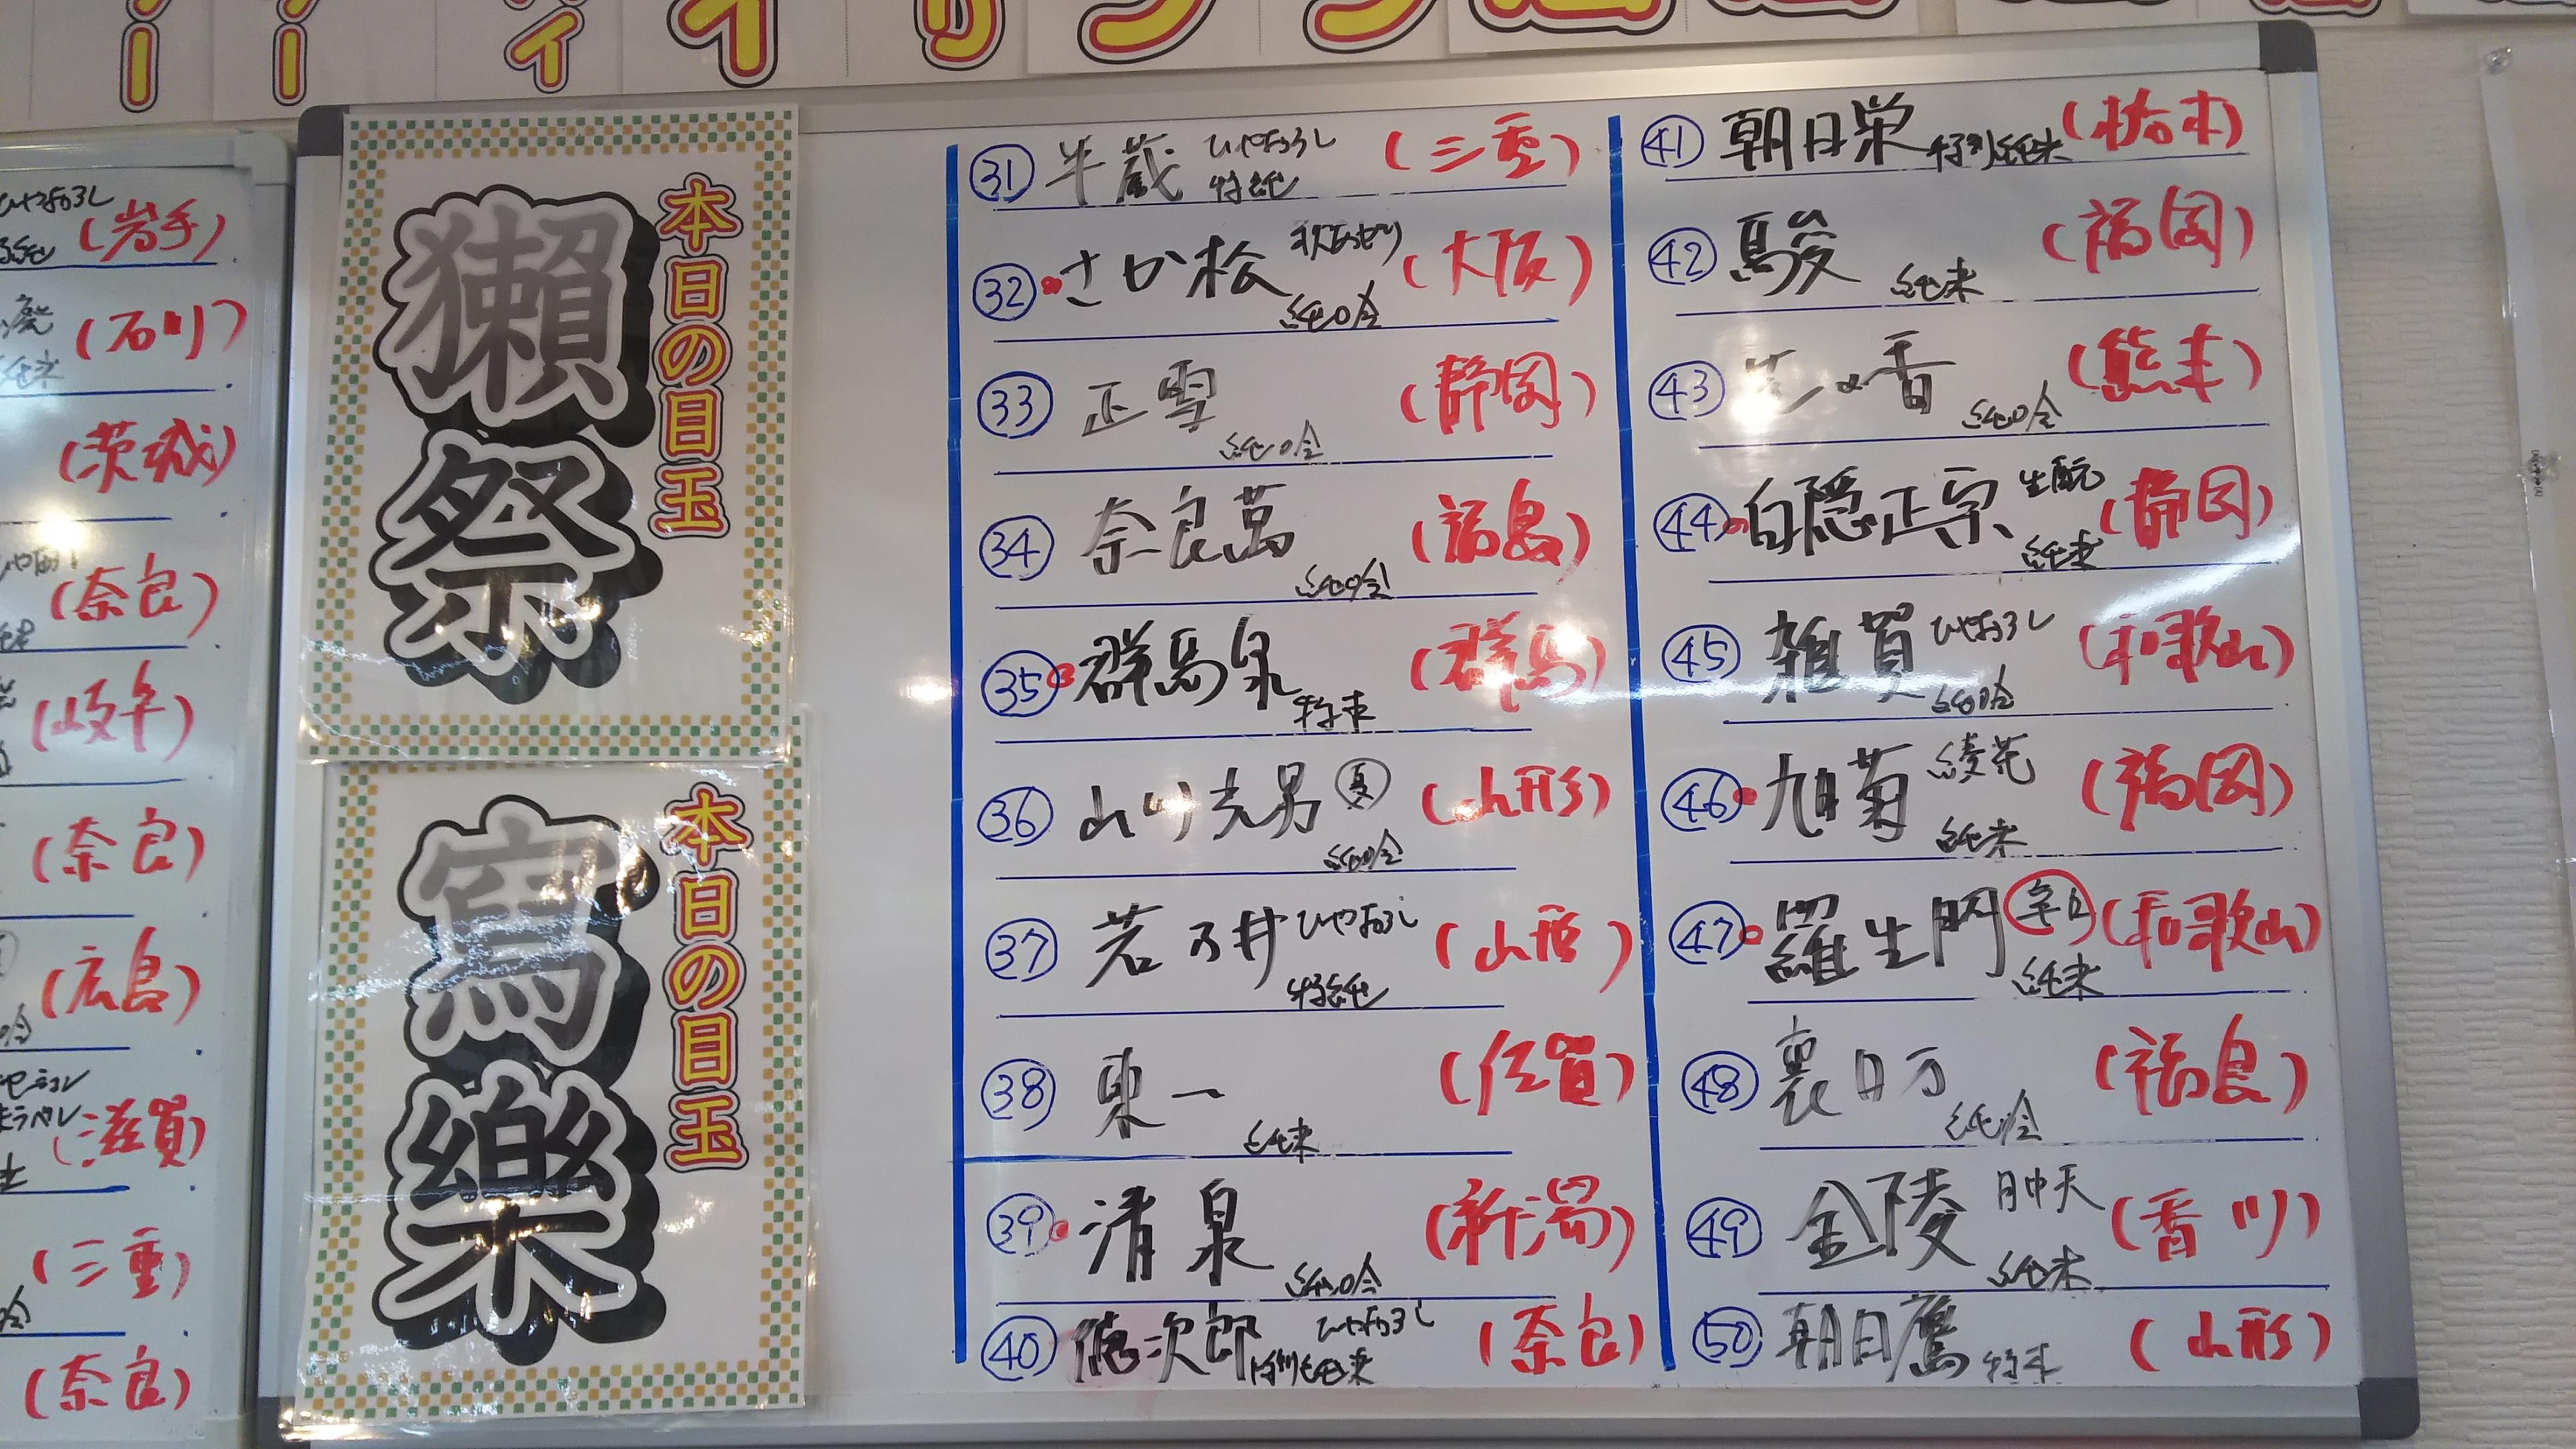 ひやおろし
(岩手)
(石川)
(茨城)
(奈良)
(岐阜)
(奈良)
(広島)
(滋賀)
(三重)
(奈良)
本日の目玉
獺祭
本日の目玉
寫樂
㉛ 半蔵 ひやおろし 特純 (三重)
㉜ さか松 秋あがり 純吟 (大阪)
㉝ 正雪 純吟 (静岡)
㉞ 奈良萬 純吟 (福島)
㉟ 群馬泉 特本 (群馬)
㊱ 山川光男 夏 純吟 (山形)
㊲ 若乃井 ひやおろし 特純 (山形)
㊳ 東一 純米 (佐賀)
㊴ 清泉 純吟 (新潟)
㊵ 徳次郎 ひやおろし 特別純米 (奈良)
㊶ 朝日栄 特別純米 (栃木)
㊷ 駿 純米 (福岡)
㊸ 花の香 純吟 (熊本)
㊹ 白隠正宗 生酛 純米 (静岡)
㊺ 雑賀 ひやおろし 純吟 (和歌山)
㊻ 旭菊 綾花 純米 (福岡)
㊼ 羅生門 辛口 純米 (和歌山)
㊽ 裏日万 純吟 (福島)
㊾ 金陵 月中天 純米 (香川)
㊿ 朝日鷹 特本 (山形)